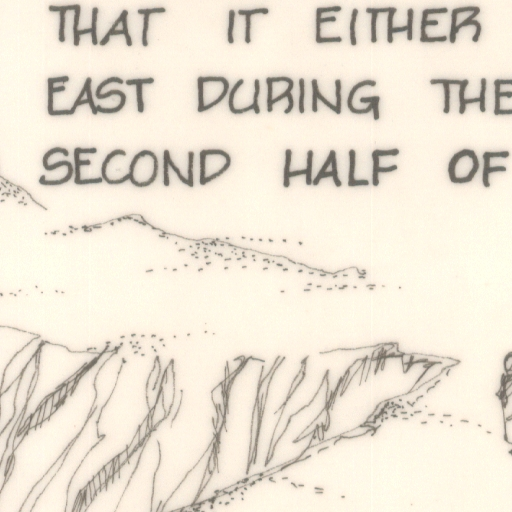 THAT IT EITHER
EAST DURING THE
SECOND HALF OF